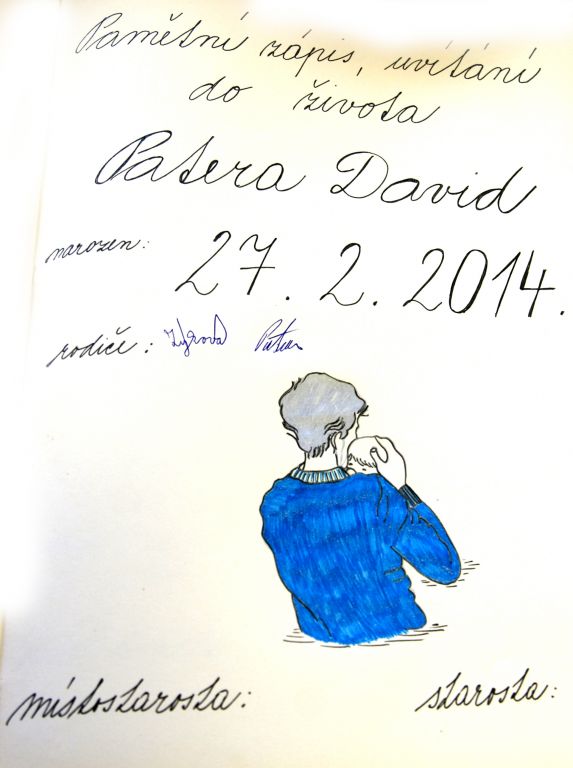 Pamětní zápis, uvítání
do života
Patera David
narozen: 27. 2. 2014.
rodiče:
místostarosta: starosta: